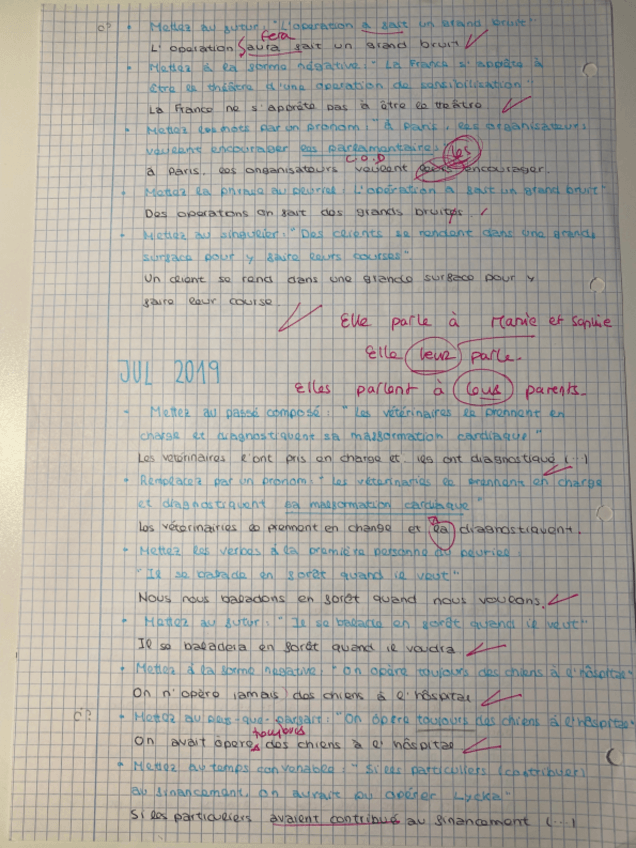 c?
• Mettez au futur : "L'opération a fait un grand bruit"
fera
L'opération saura fait un grand bruit
• Mettez à la forme négative : "La France s'apprête à
être le théâtre d'une opération de sensibilization"
La France ne s'apprête pas à être le théâtre
• Mettez les mots par un pronom : "À Paris, les organisateurs
veulent encourager les parlamentaires"
les
C.O.D
à Paris, les organisateurs veulent encourager.
• Mettez la phrase au pluriel : L'opération a fait un grand bruit"
Des operatons on fait des grands bruits
• Mettez au singulier : "Des clients se rendent dans une grande
surface pour y faire leurs courses"
Un client se rend dans une grande surface pour y
faire leur course.
Elle parle à Marie et Sophie
Elle leur parle.
JUL 2019
Elles parlent à leus parents.
• Mettez au passé composé : "Les vétérinaires le prennent en
charge et diagnostiquent sa malformation cardiaque"
Les vétérinaires l'ont pris en charge et les ont diagnostiqué (...)
• Remplacez par un pronom : "Les vétérinaries le prennent en charge
et diagnostiquent sa malformation cardiaque"
Los vétérinairies le prennent en change et la diagnostiquent.
• Mettez les verbes à la première personne du pluriel :
"Il se balade en forêt quand il veut"
Nous nous baladons en forêt quand nous voulons.
• Mettez au futur : "Il se balade en forêt quand il veut"
Il se baladera en forêt quand il voudra
• Mettez à la forme negative : "On opère toujours des chiens à l'hôspital"
On n'opère jamais des chiens à l'hôspital
c?
• Mettez au plus-que-parfait : "On opère toujours des chiens à l'hôspital"
toujours
On avait opéré des chiens à l'hôspital
• Mettez au temps convenable : "Si les particuliers (contribuer)
au financement, on aurait pu opérer Lycka"
Si les particuliers avaient contribué au financement (...)